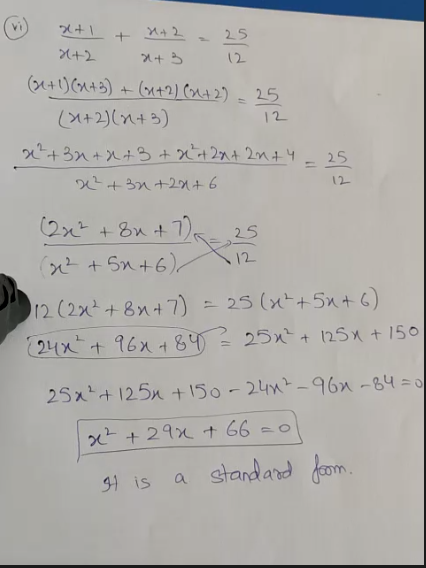 (vi) (x+1)/(x+2) + (x+2)/(x+3) = 25/12
((x+1)(x+3) + (x+2)(x+2))/((x+2)(x+3)) = 25/12
(x²+3x+x+3 + x²+2x+2x+4)/(x²+3x+2x+6) = 25/12
(2x² + 8x + 7)/(x² + 5x + 6) = 25/12
12(2x²+8x+7) = 25(x²+5x+6)
24x² + 96x + 84 = 25x² + 125x + 150
25x²+125x+150-24x²-96x-84=0
x² + 29x + 66 = 0
It is a standard foom.